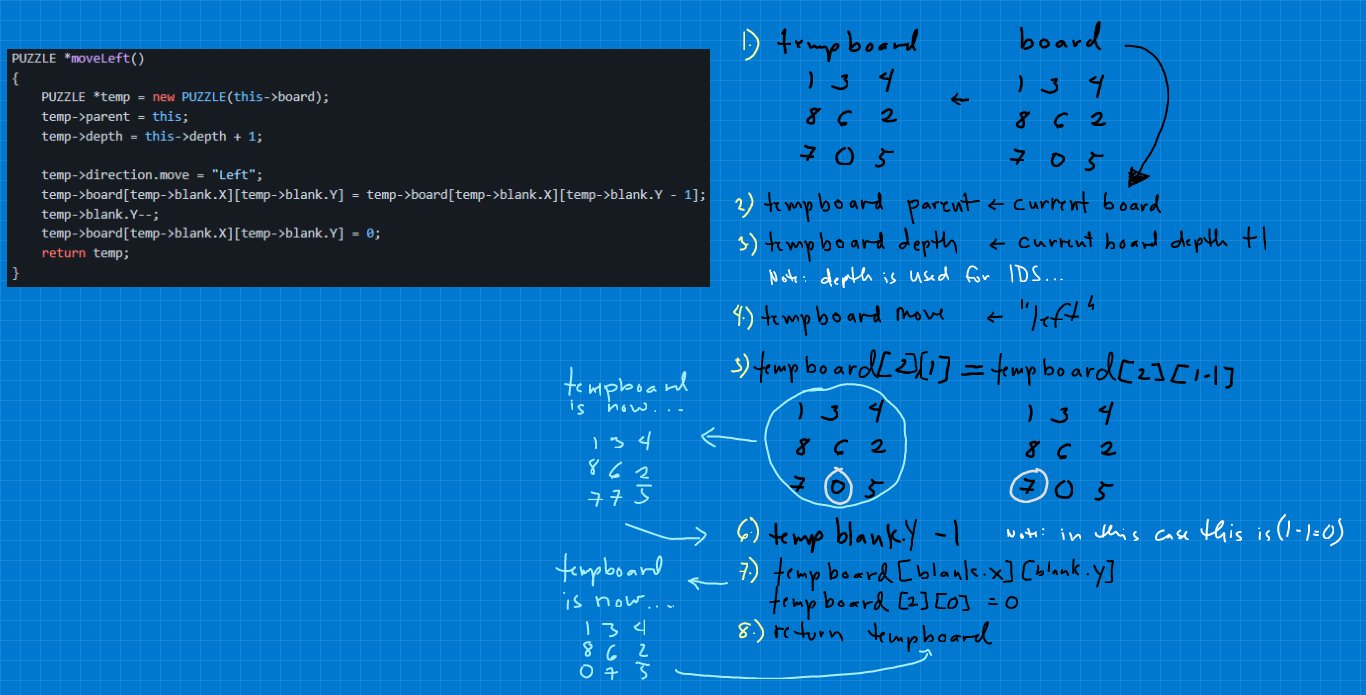 PUZZLE *moveLeft()
{
    PUZZLE *temp = new PUZZLE(this->board);
    temp->parent = this;
    temp->depth = this->depth + 1;

    temp->direction.move = "Left";
    temp->board[temp->blank.X][temp->blank.Y] = temp->board[temp->blank.X][temp->blank.Y - 1];
    temp->blank.Y--;
    temp->board[temp->blank.X][temp->blank.Y] = 0;
    return temp;
}
1.) tempboard board
1 3 4 1 3 4
8 6 2 ← 8 6 2
7 0 5 7 0 5
2) tempboard parent ← current board
3) tempboard depth ← current board depth +1
Note: depth is used for IDS...
4.) tempboard move ← "left"
5) tempboard[2][1] = tempboard[2][1-1]
1 3 4 1 3 4
8 6 2 8 6 2
7 0 5 7 0 5
tempboard
is now...
1 3 4
8 6 2
7 7 5
6.) temp blank.Y -1 Note: in this case this is (1-1=0)
7.) tempboard[blank.x][blank.y]
tempboard[2][0] = 0
tempboard
is now...
1 3 4
8 6 2
0 7 5
8.) return tempboard